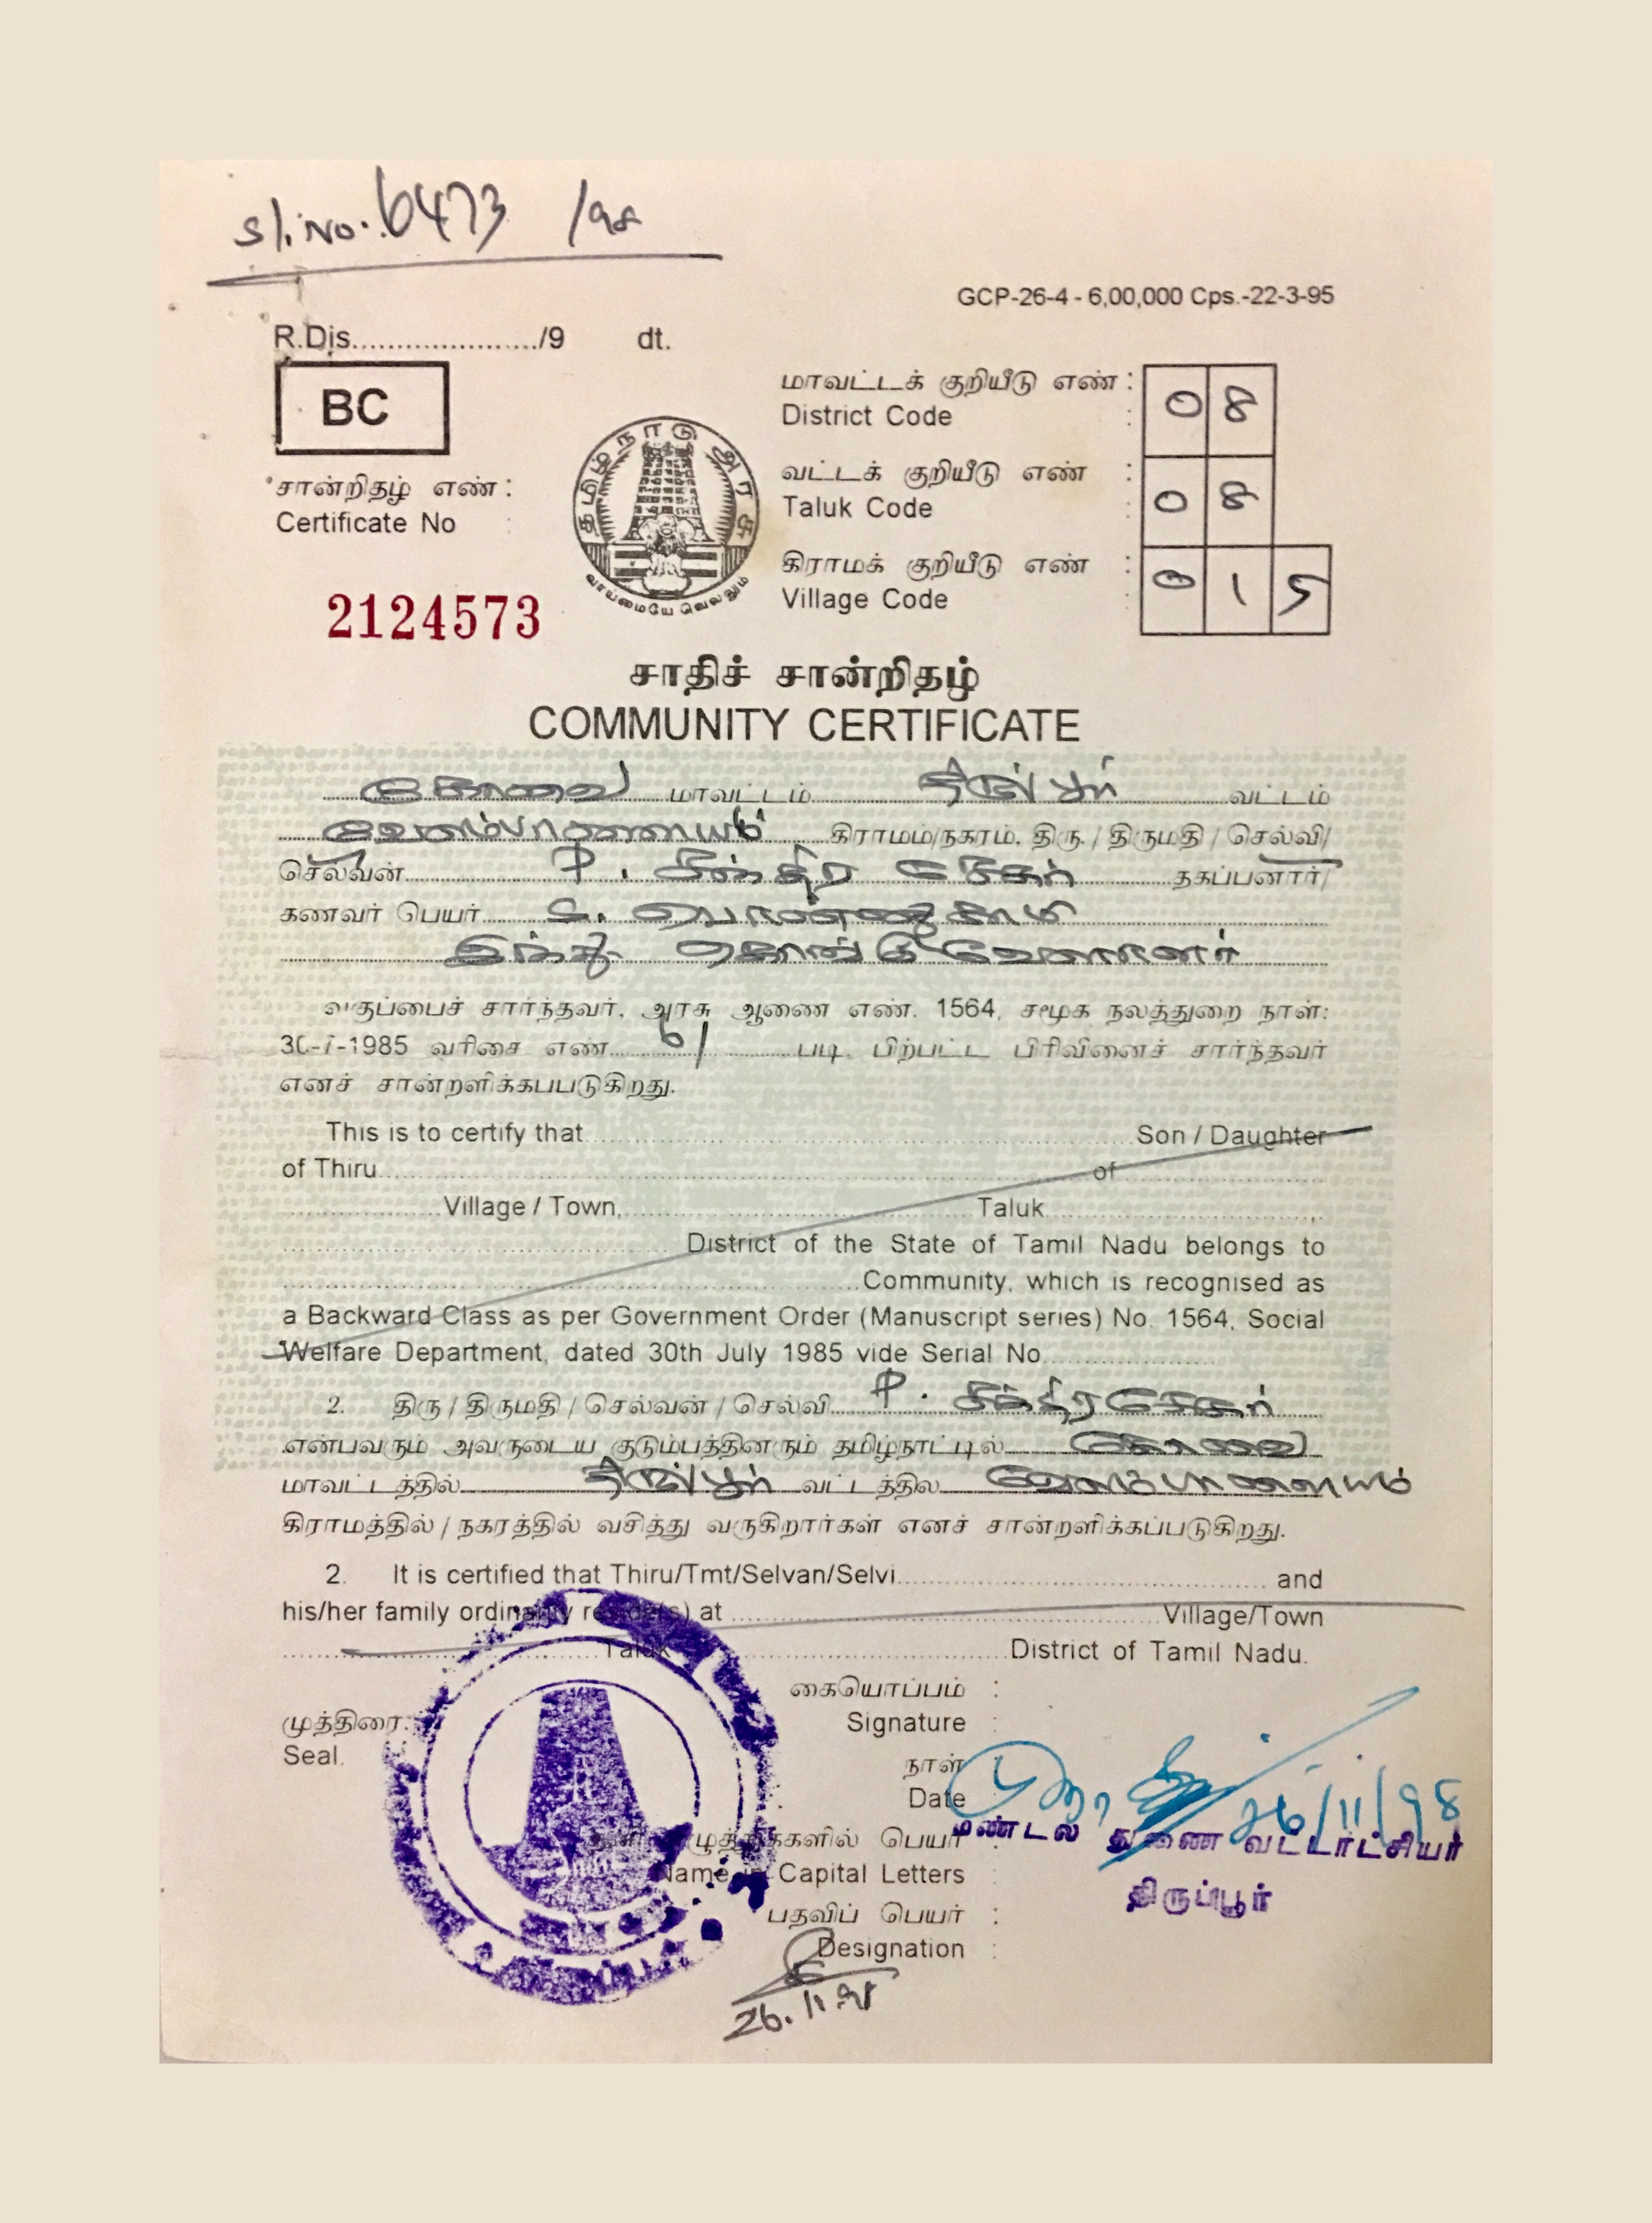 Sl.No. 6473 /98
GCP-26-4 - 6,00,000 Cps.-22-3-95
R.Dis...................../9 dt.
BC
மாவட்டக் குறியீடு எண் :
District Code : 0 8
சான்றிதழ் எண் :
Certificate No :
2124573
தமிழ்நாடு அரசு
வாய்மையே வெல்லும்
வட்டக் குறியீடு எண் :
Taluk Code : 0 8
கிராமக் குறியீடு எண் :
Village Code : 0 1 5
சாதிச் சான்றிதழ்
COMMUNITY CERTIFICATE
கோவை மாவட்டம் திருப்பூர் வட்டம்
வேலம்பாளையம் கிராமம்/நகரம். திரு. / திருமதி / செல்வி/
செல்வன் P. சந்திர சேகர் தகப்பனார்/
கணவர் பெயர் பொன்னுசாமி
இந்து கொங்கு வேளாளர்
வகுப்பைச் சார்ந்தவர், அரசு ஆணை எண். 1564, சமூக நலத்துறை நாள்:
30-7-1985 வரிசை எண் படி பிற்பட்ட பிரிவினைச் சார்ந்தவர்
எனச் சான்றளிக்கப்படுகிறது.
This is to certify that Son / Daughter
of Thiru of
Village / Town, Taluk
District of the State of Tamil Nadu belongs to
Community, which is recognised as
a Backward Class as per Government Order (Manuscript series) No. 1564, Social
Welfare Department, dated 30th July 1985 vide Serial No
2. திரு / திருமதி / செல்வன் / செல்வி P. சந்திரசேகர்
என்பவரும் அவருடைய குடும்பத்தினரும் தமிழ்நாட்டில் கோவை
மாவட்டத்தில் திருப்பூர் வட்டத்தில் வேலம்பாளையம்
கிராமத்தில் / நகரத்தில் வசித்து வருகிறார்கள் எனச் சான்றளிக்கப்படுகிறது.
2. It is certified that Thiru/Tmt/Selvan/Selvi and
his/her family ordinarily reside(s) at Village/Town
Taluk District of Tamil Nadu.
கையொப்பம் :
முத்திரை: Signature :
Seal. நாள்
Date 26/11/98
மண்டல துணை வட்டாட்சியர்
பெயர்
Name in Capital Letters :
திருப்பூர்
பதவிப் பெயர் :
Designation :
26.11.98